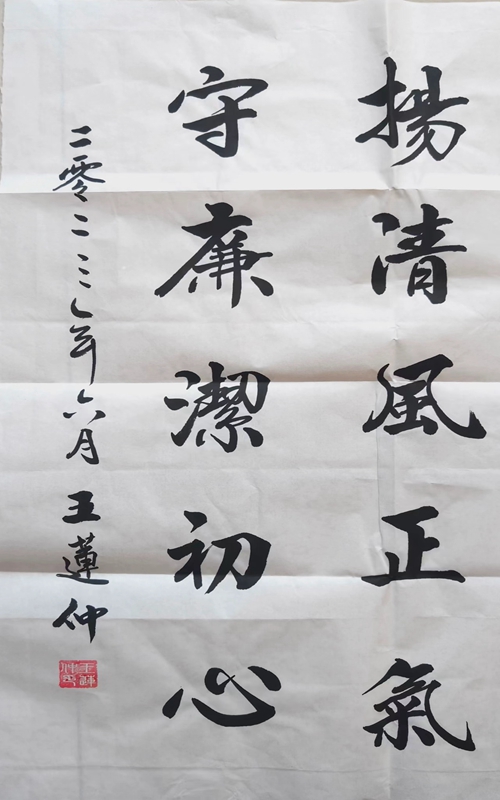 揚清風正氣
守廉潔初心
二零二三年六月王蓮仲